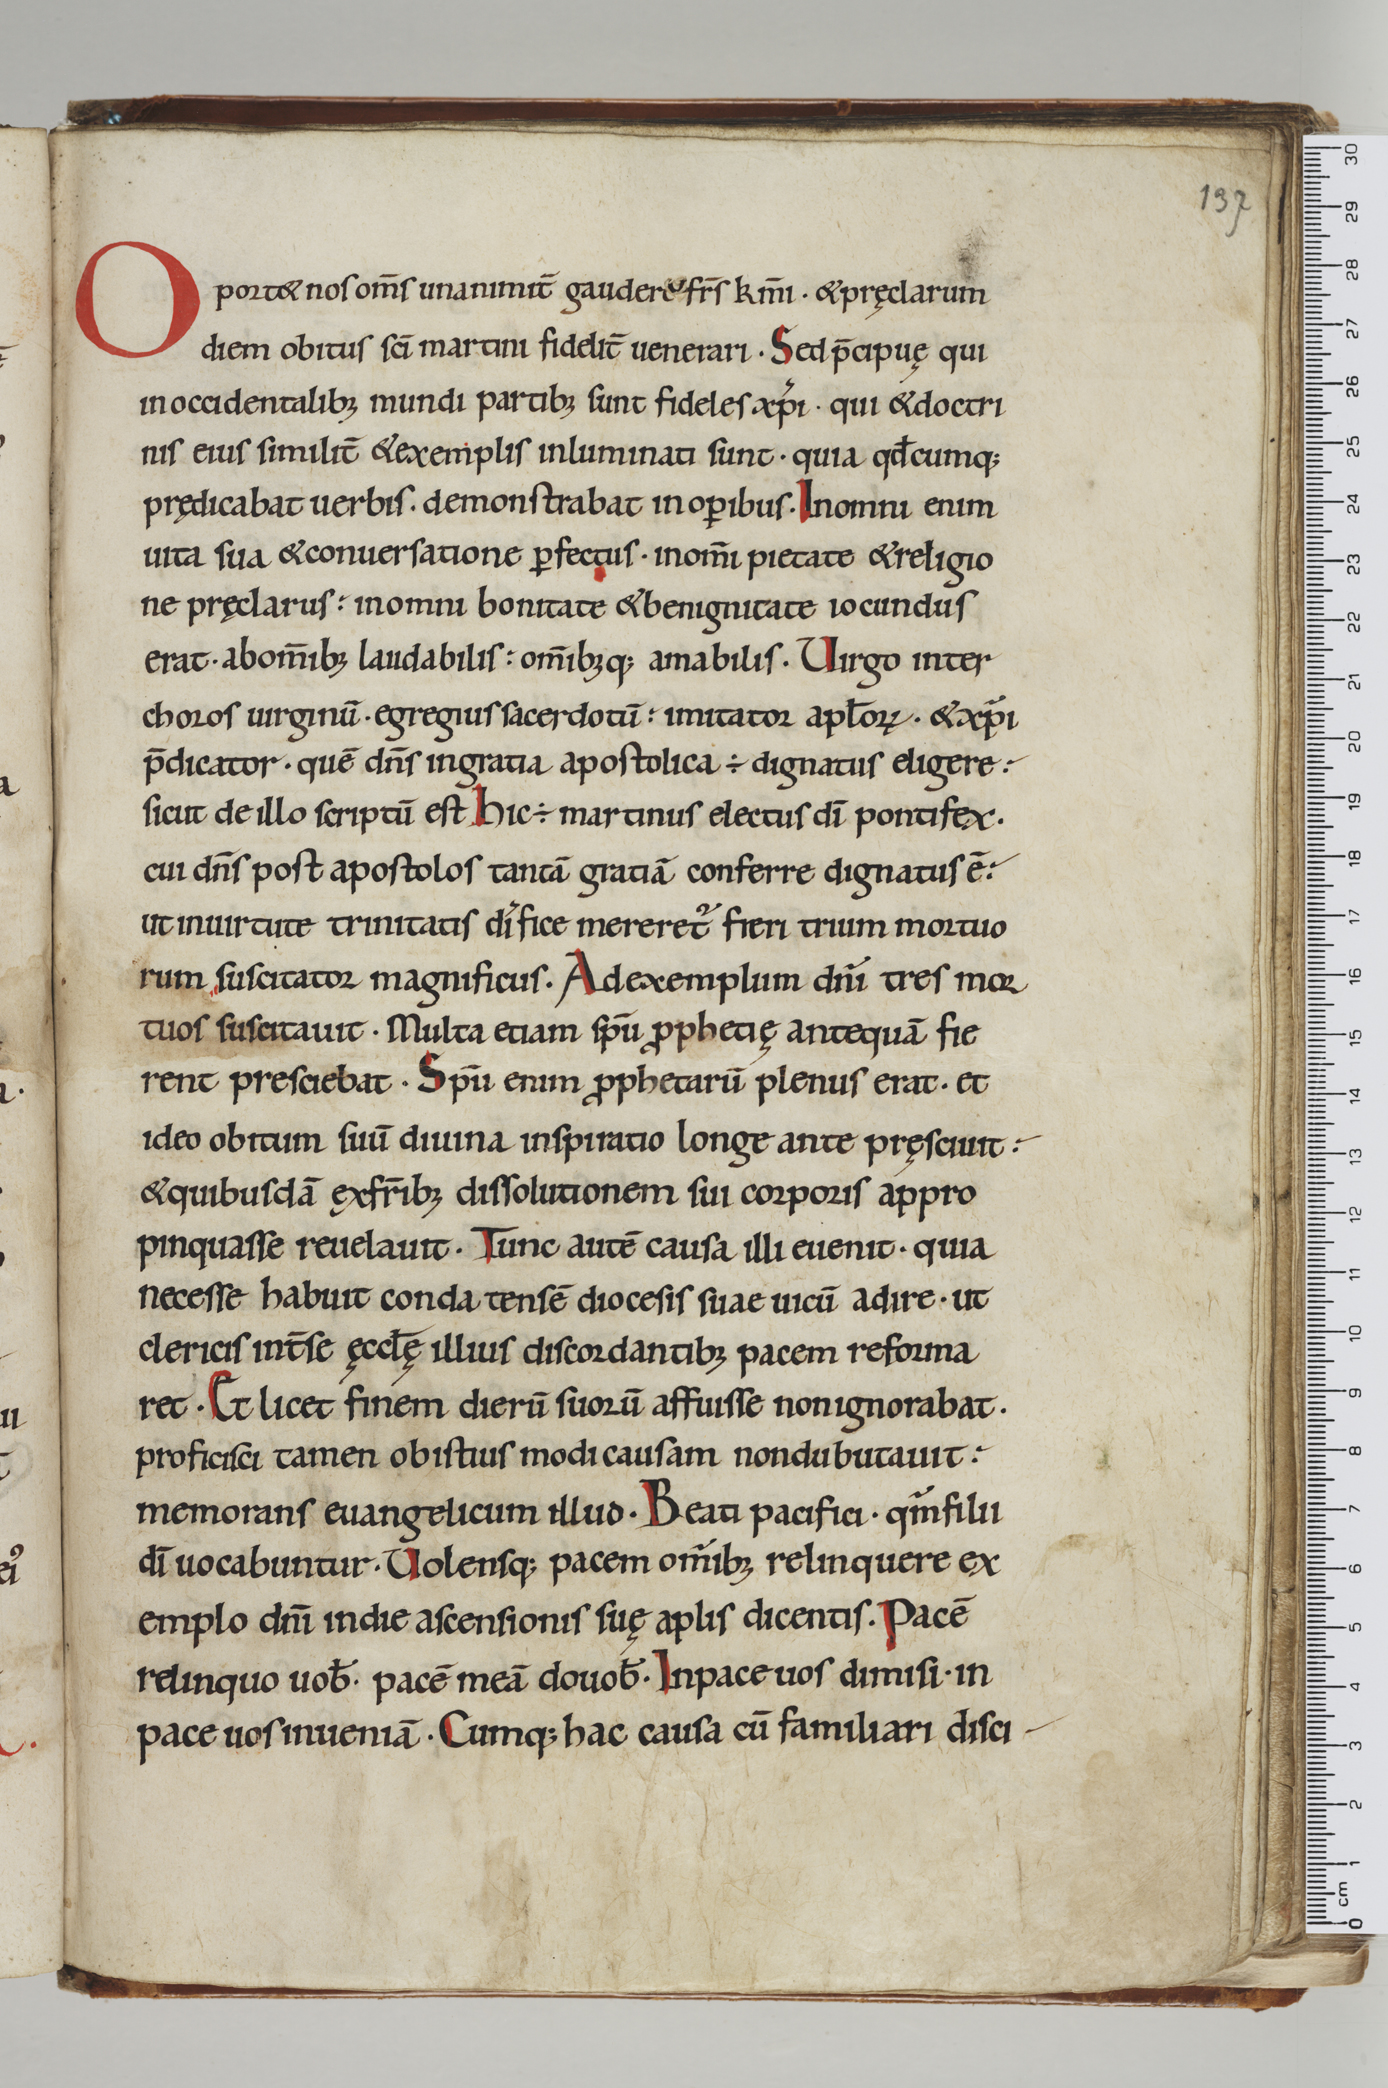 137
Oportet nos om̄s unanimit̄ gaudere fr̄s km̄i · & pręclarum
diem obitus sc̄i martini fidelit̄ uenerari · Sed p̄cipuę qui
in occidentalibꝫ mundi partibꝫ sunt fideles xp̄i · qui & doctri
nis eius similit̄ & exemplis inluminati sunt · quia qd̄cumq;
prędicabat uerbis · demonstrabat in oꝑibus · In omni enim
uita sua & conuersatione ꝑfectus · in om̄i pietate & religio
ne pręclarus : in omni bonitate & benignitate iocundus
erat · ab om̄ibꝫ laudabilis : om̄ibꝫq; amabilis · Uirgo inter
choros uirginū · egregius sacerdotū : imitator apl̄oꝝ · & xp̄i
p̄dicator · quē dn̄s in gratia apostolica ÷ dignatus eligere :
sicut de illo scriptū est Hic ÷ martinus electus dī pontifex ·
cui dn̄s post apostolos tantā gratiā conferre dignatus ē :
ut in uirtute trinitatis dīfice mereret᷒ fieri trium mortuo
rum suscitator magnificus · Ad exemplum dn̄i tres mor
tuos suscitauit · Multa etiam sp̄u ꝓphetię antequā fie
rent presciebat · Sp̄u enim ꝓphetarū plenus erat · et
ideo obitum suū diuina inspiratio longe ante pręsciuit :
& quibusdā ex fr̄ibꝫ dissolutionem sui corporis appro
pinquasse reuelauit · Tunc autē causa illi euenit · quia
necesse habuit condatensē diocesis suae uicū adire · ut
clericis int̄ se ęccl̄ę illius discordantibꝫ pacem reforma
ret · Et licet finem dierū suorū affuisse non ignorabat ·
proficisci tamen ob istius modi causam non dubutauit :
memorans euangelicum illud · Beati pacifici · qm̄ filii
dī uocabuntur · Uolensq; pacem om̄ibꝫ relinquere ex
emplo dn̄i in die ascensionis suę aplis dicentis · Pacē
relinquo uob̄ · pacē meā do uob̄ · In pace uos dimisi · in
pace uos inueniā · Cumq; hac causa cū familiari disci